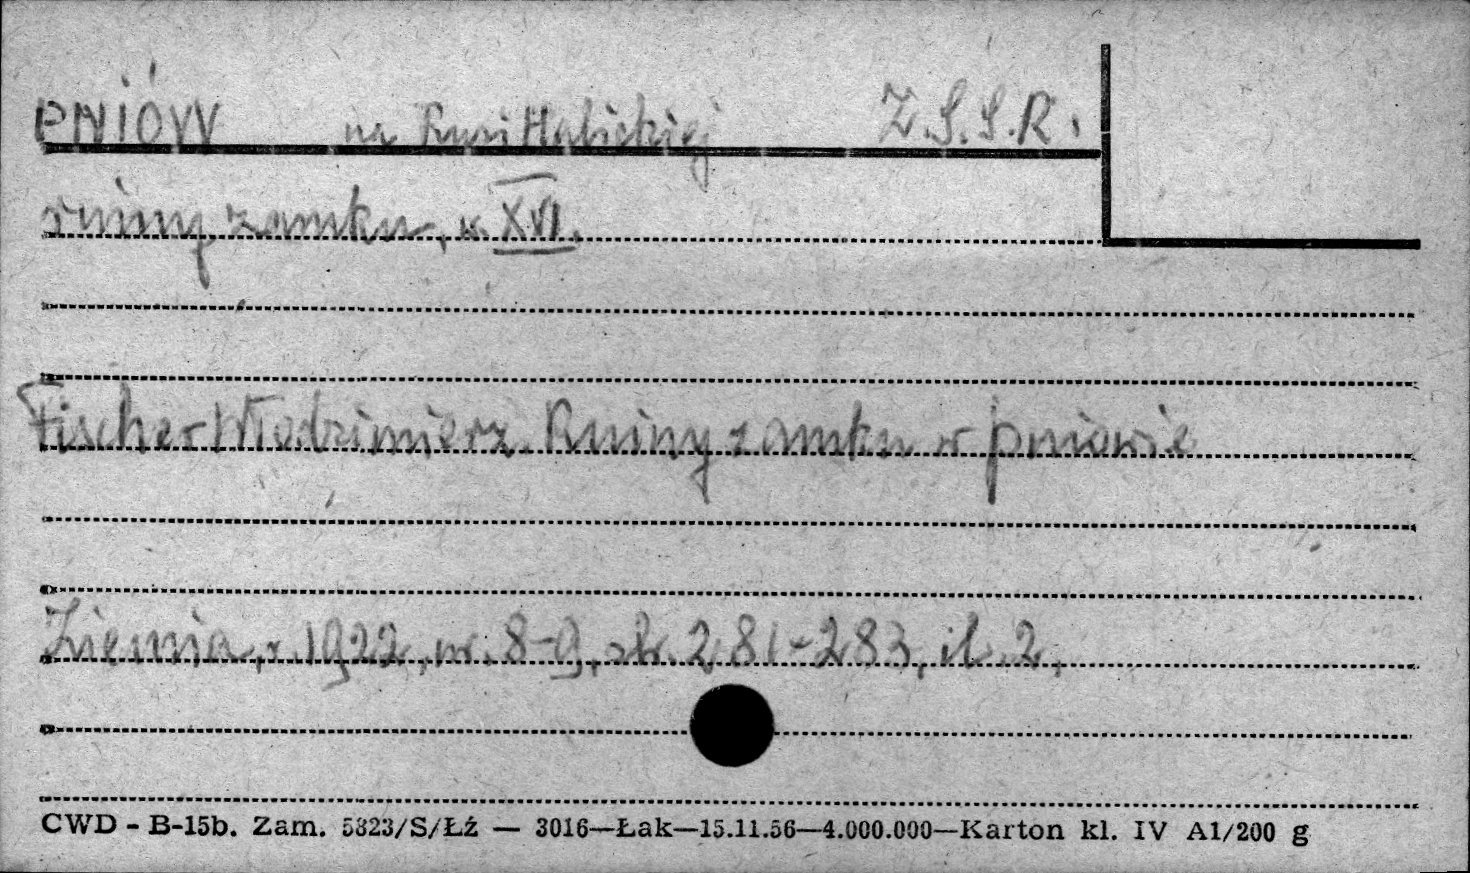 PNIÓW na Rusi Halickiej Z.S.S.R.
ruiny zamku, w. XVI.
Fischer Włodzimierz. Ruiny zamku w pniowie
Ziemia, r. 1922, nr. 8-9, str. 281-283, il. 2,
CWD - B-15b. Zam. 5323/S/Łź — 3016—Łak—15.11.56—4.000.000—Karton kl. IV A1/200 g